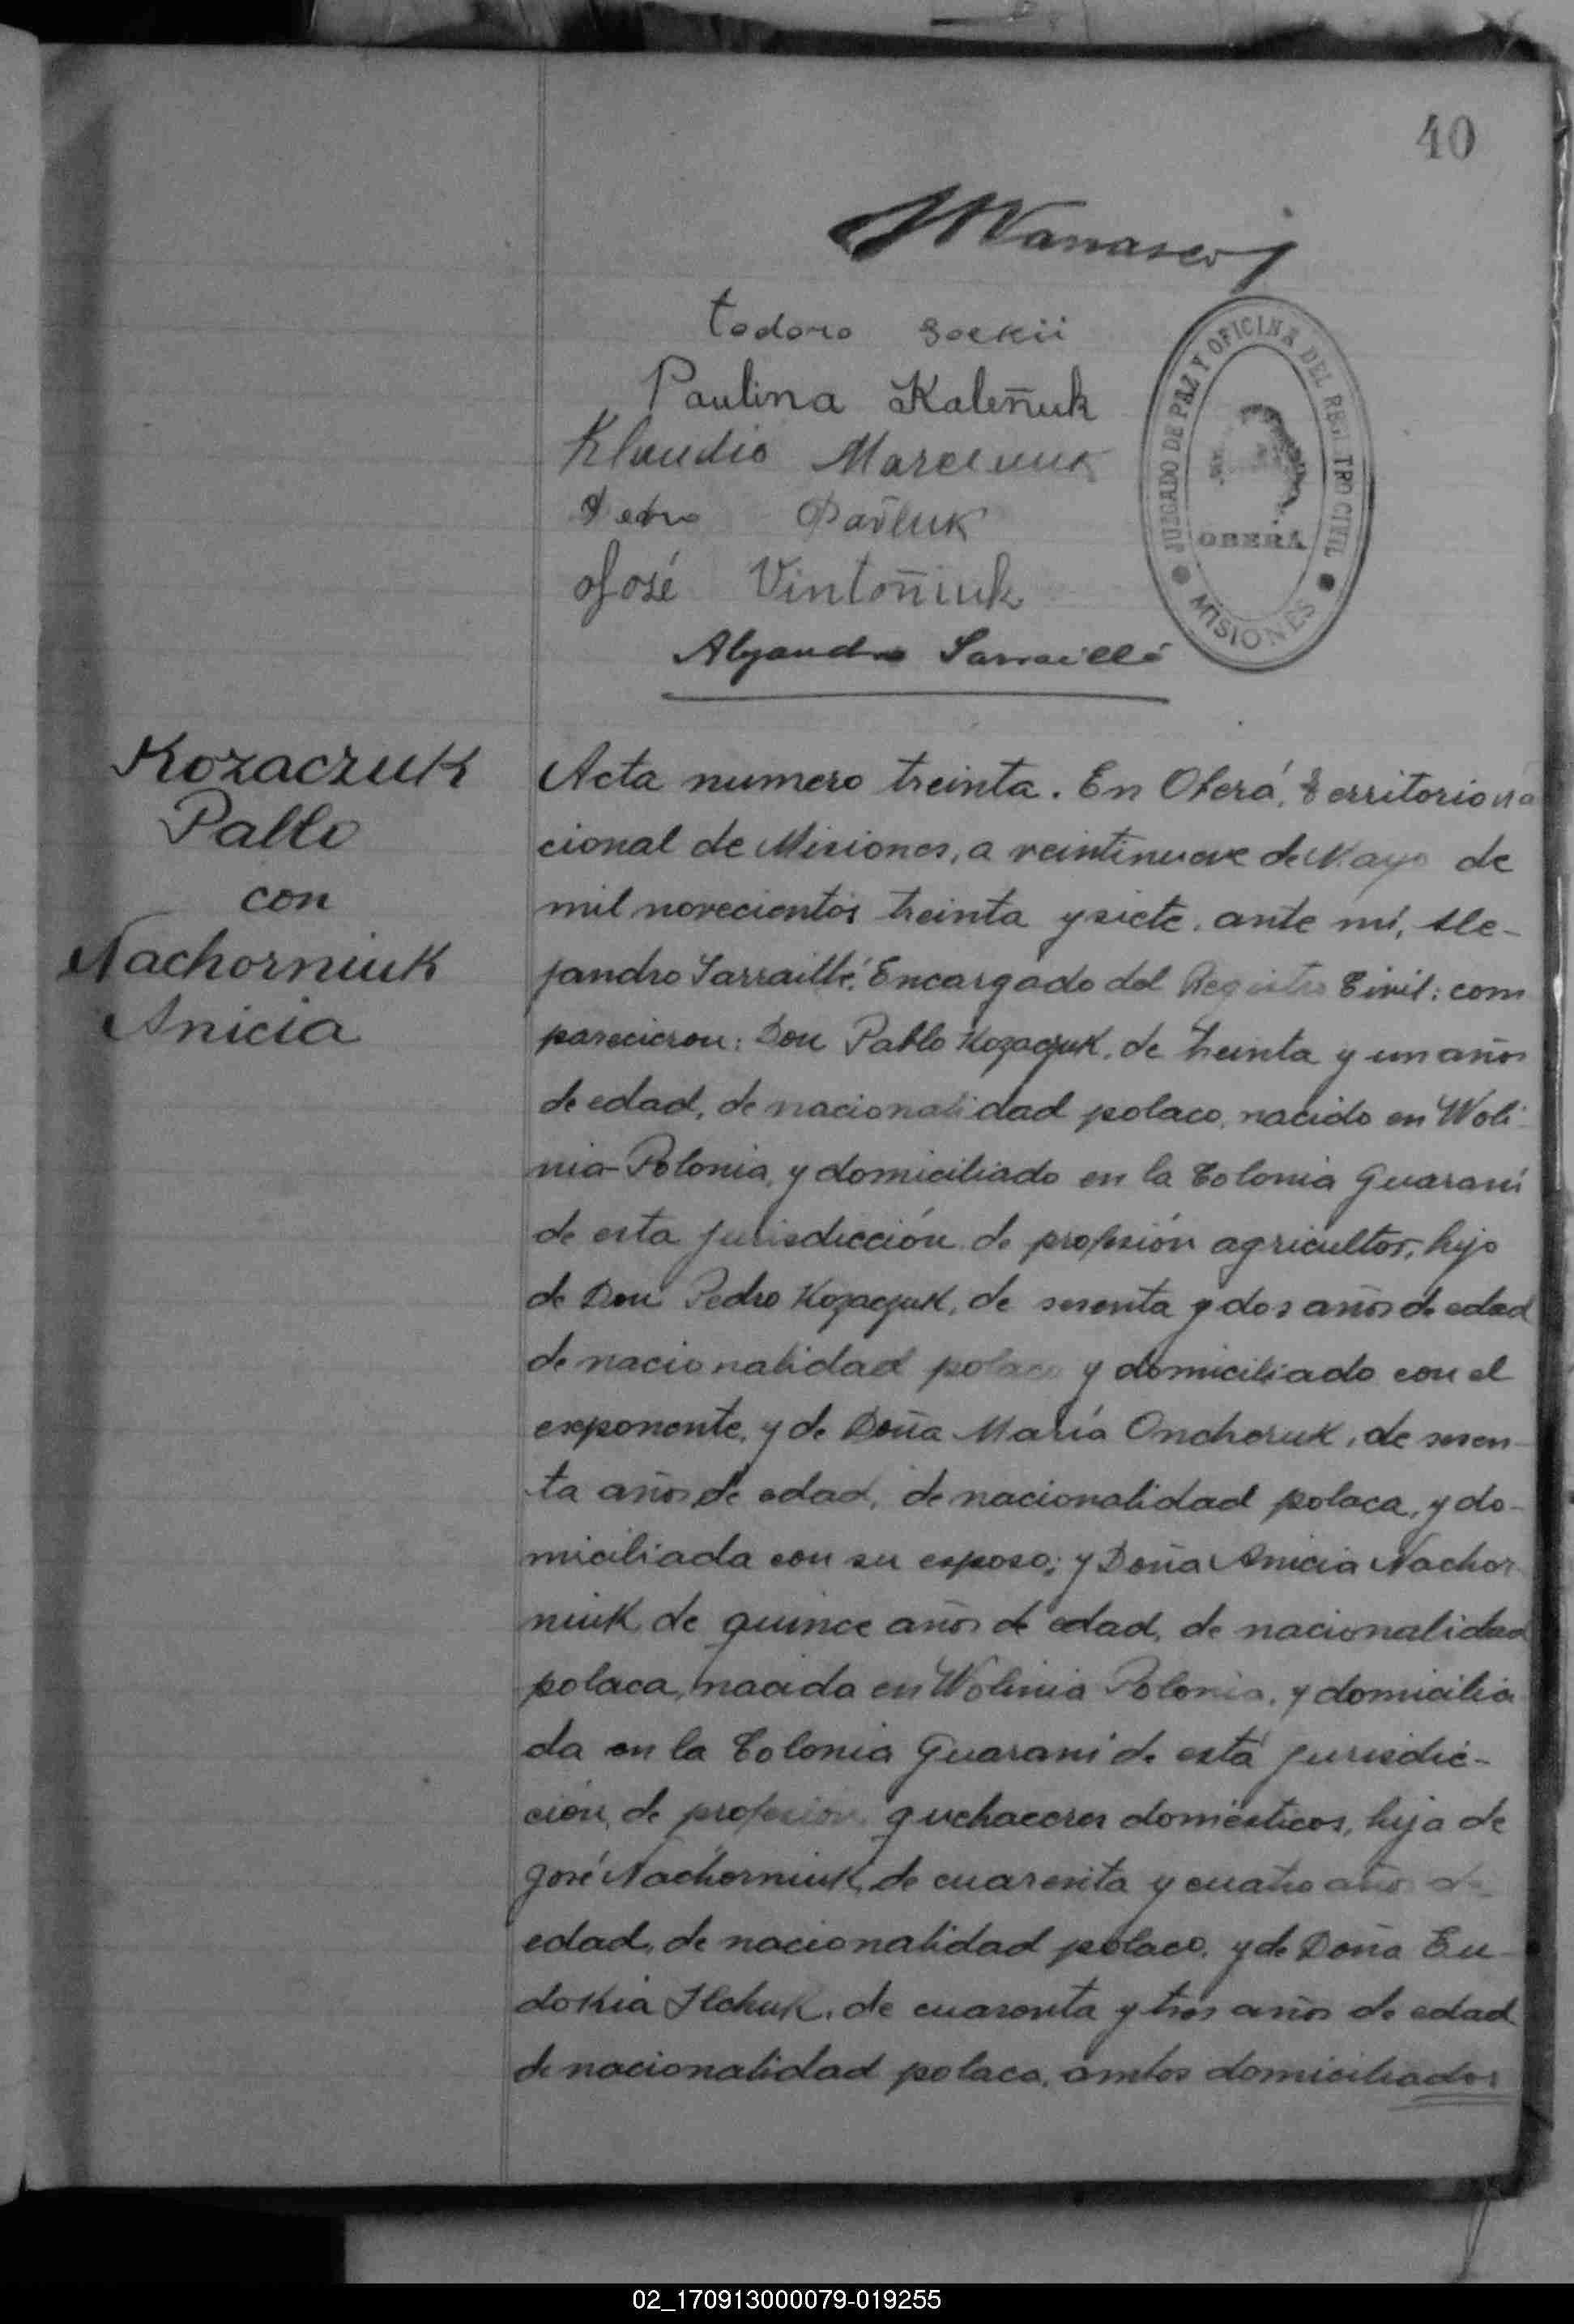 40
todoro
Paulina Kaleñuk
Klaudio
Pavluk
José Vintoñiuk
Alejandro Sarraillé
JUZGADO DE PAZ Y OFICINA DEL REGISTRO CIVIL
OBERÁ
MISIONES
Kozaczuk
Pablo
con
Nachorniuk
Anicia
Acta numero treinta. En Oberá, Territorio na
cional de Misiones, a veintinueve de Mayo de
mil novecientos treinta y siete, ante mí, Ale-
jandro Sarraillé, Encargado del Registro Civil: com
parecieron: Don Pablo Kozaczuk, de treinta y un años
de edad, de nacionalidad polaco, nacido en Woli-
nia-Polonia, y domiciliado en la Colonia Guaraní
de esta jurisdicción de profesión agricultor, hijo
de Don Pedro Kozaczuk, de sesenta y dos años de edad
de nacionalidad polaco y domiciliado con el
exponente, y de Doña María Oncheruk, de sesen-
ta años de edad, de nacionalidad polaca, y do-
miciliada con su esposo; y Doña Anicia Nachor-
niuk de quince años de edad, de nacionalidad
polaca, nacida en Wolinia Polonia, y domicilia
da en la Colonia Guaraní de esta jurisdic-
ción, de profesión quehaceres domésticos, hija de
José Nachorniuk, de cuarenta y cuatro años de
edad, de nacionalidad polaco, y de Doña Eu-
dokia Ilchuk, de cuarenta y tres años de edad
de nacionalidad polaca, ambos domiciliados
02_170913000079-019255